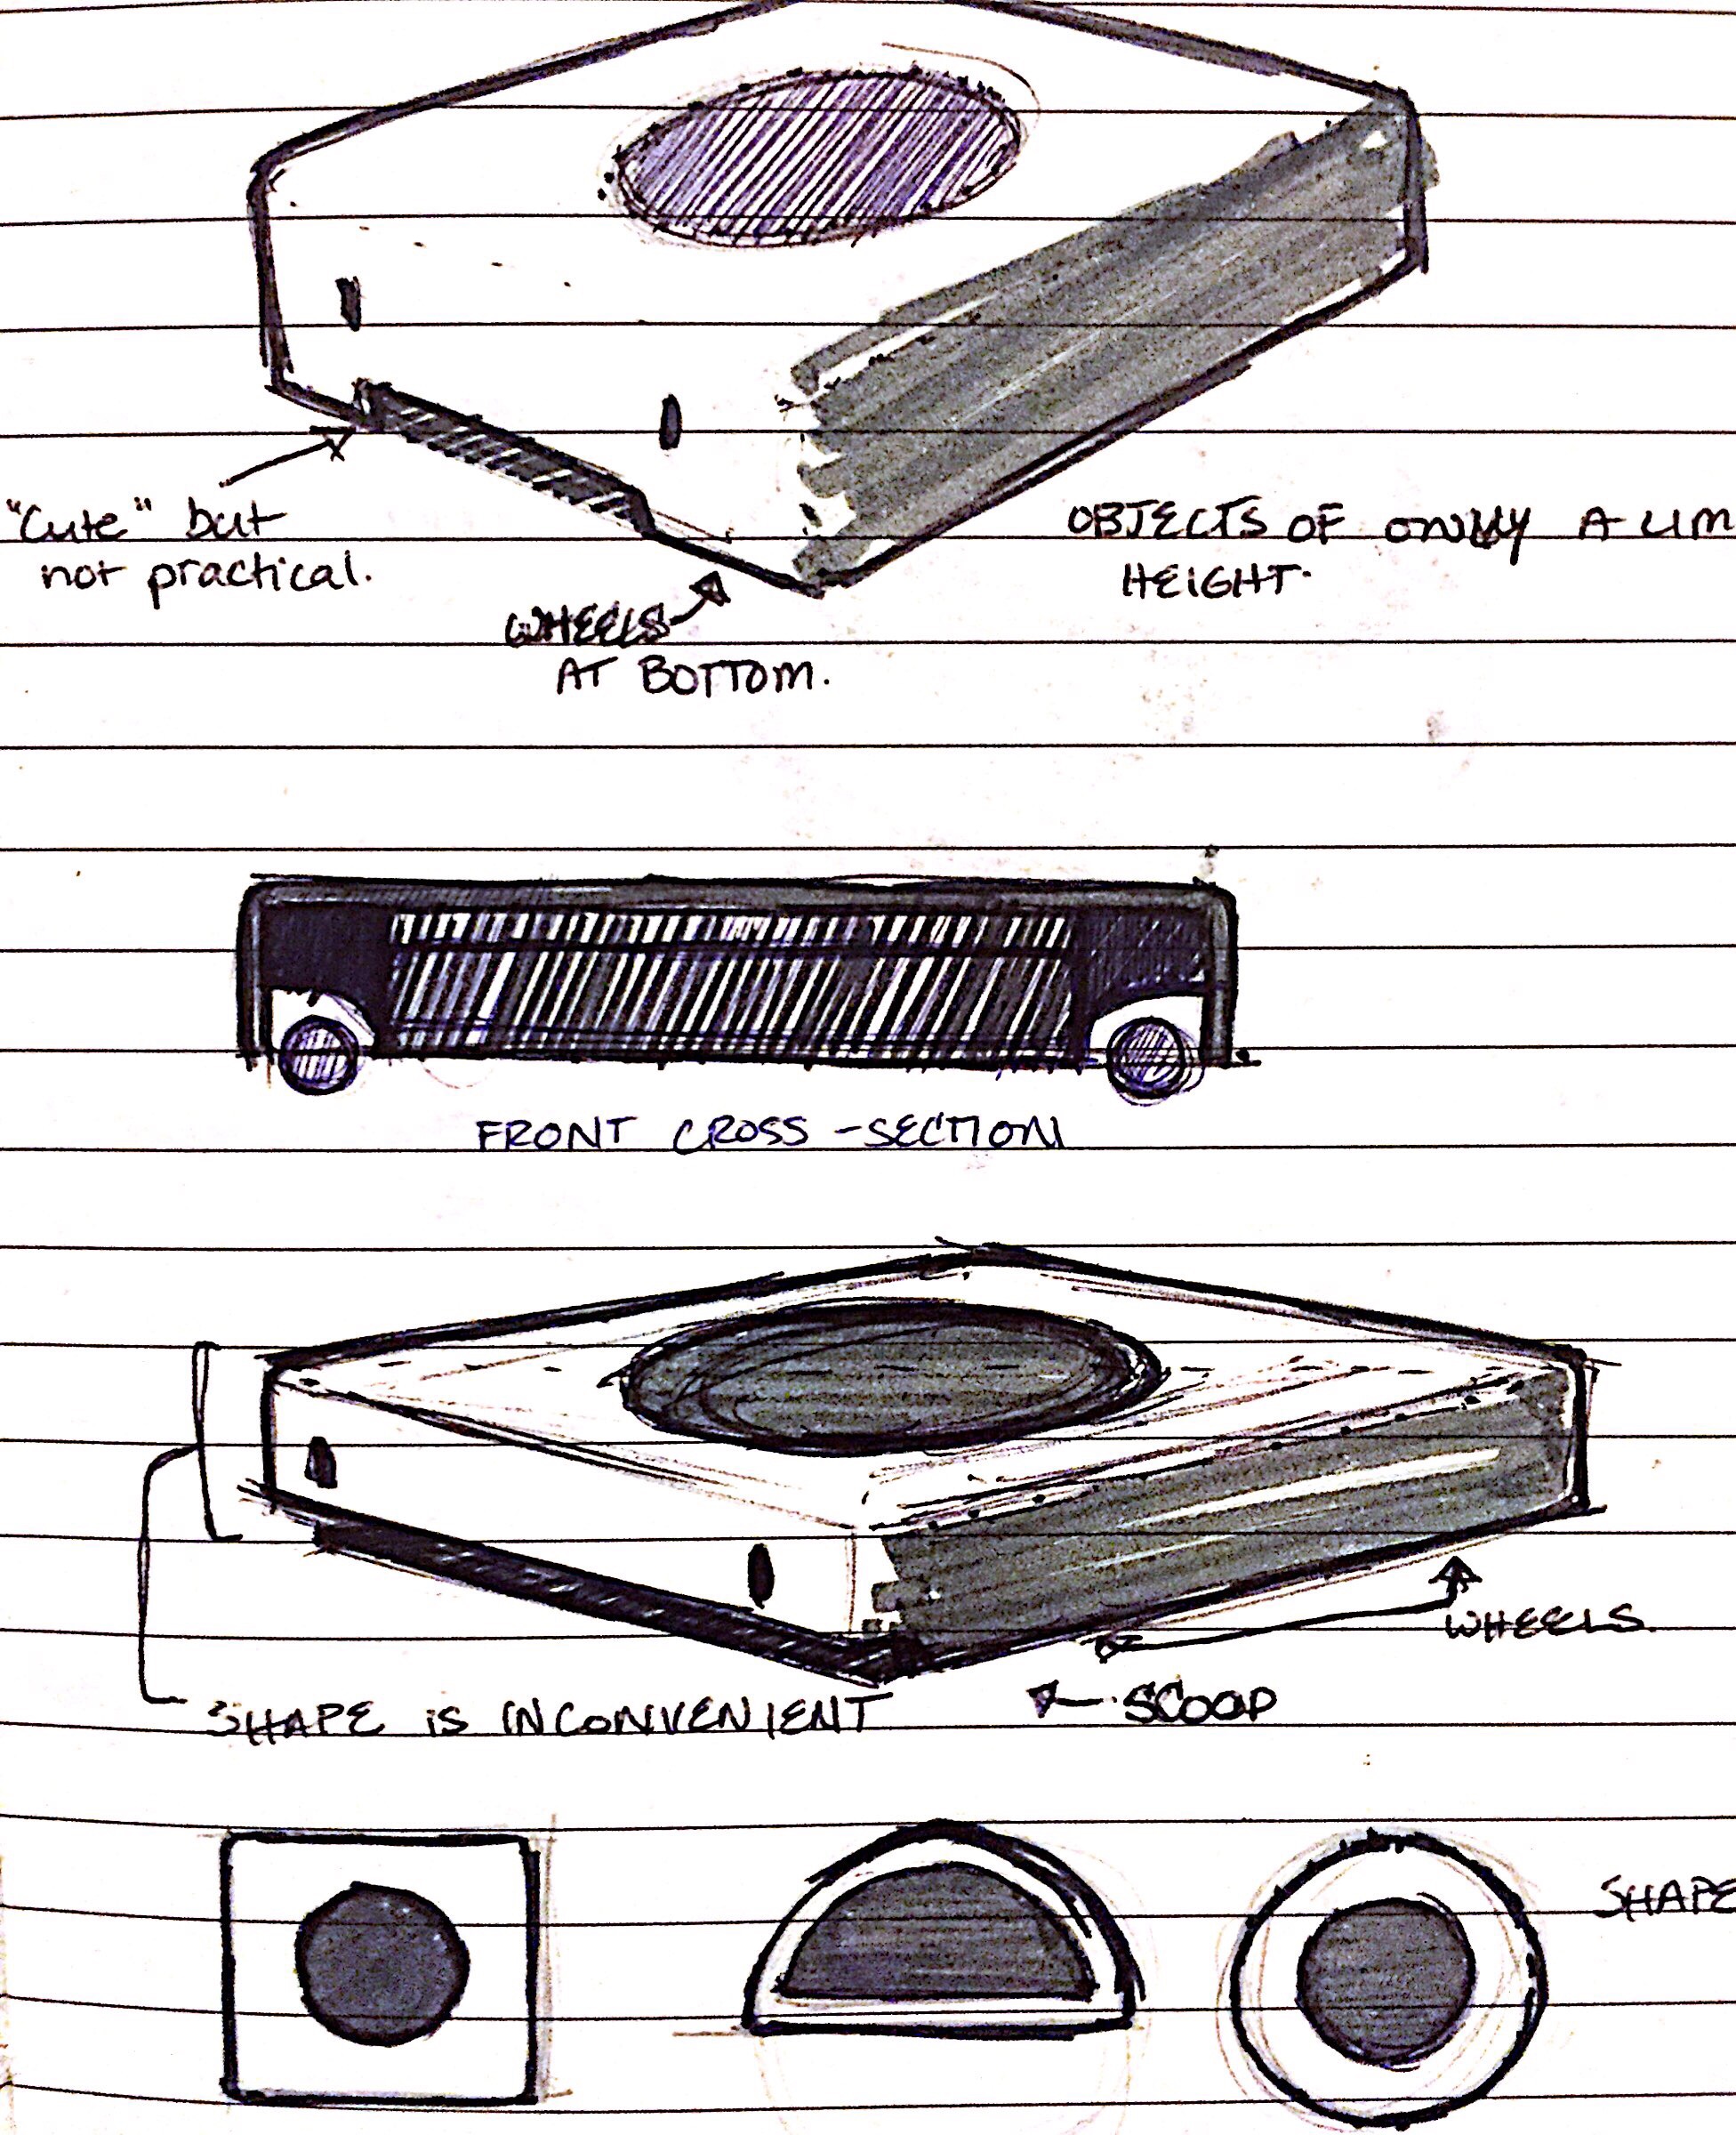 "Cute" but
not practical.
OBJECTS OF ONLY A LIM
HEIGHT.
WHEELS
AT BOTTOM.
FRONT CROSS-SECTION
WHEELS.
SHAPE IS INCONVENIENT
SCOOP
SHAPE